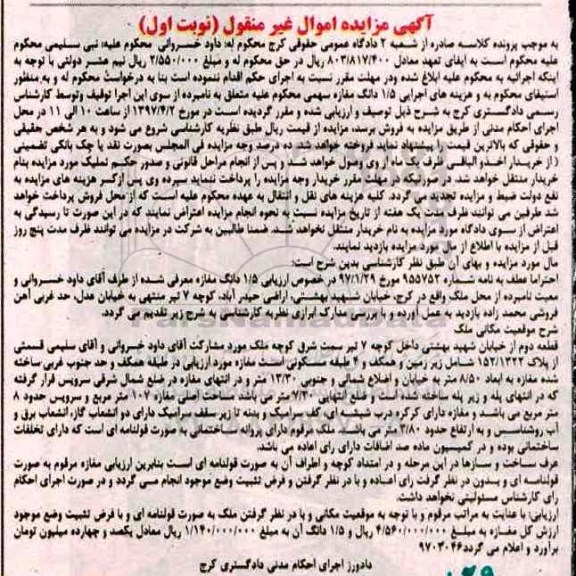 آگهی مزایده اموال غیر منقول (نوبت اول)
به موجب پرونده کلاسه صادره از شعبه ۲ دادگاه عمومی حقوقی کرج محکوم له: داود خسروانی محکوم علیه: نبی سلیمی محکوم
علیه محکوم است به ایفای تعهد معادل ۸۰۳/۸۱۷/۴۰۰ ریال در حق محکوم له و مبلغ ۲/۵۵۰/۰۰۰ ریال نیم عشر دولتی با توجه به
اینکه اجرائیه به محکوم علیه ابلاغ شده ودر مهلت مقرر نسبت به اجرای حکم اقدام ننموده است بنا به درخواست محکوم له و به منظور
استیفای محکوم به و هزینه های اجرایی ۱/۵ دانگ مغازه سهمی محکوم علیه متعلق به نامبرده از سوی این اجرا توقیف وتوسط کارشناس
رسمی دادگستری کرج به شرح ذیل توصیف و ارزیابی شده و مقرر گردیده است در مورخ ۱۳۹۷/۴/۲ از ساعت ۱۰ الی ۱۱ در محل
اجرای احکام مدنی از طریق مزایده به فروش برسد، مزایده از قیمت ریال طبق نظریه کارشناسی شروع می شود و به هر شخص حقیقی
و حقوقی که بالاترین قیمت را پیشنهاد نماید فروخته خواهد شد ده درصد وجه مزایده فی المجلس بصورت نقد یا چک بانکی تضمینی
از خریدار اخذ و الباقی ظرف یک ماه از وی وصول خواهد شد و پس از انجام مراحل قانونی و صدور حکم تملیک مورد مزایده بنام
خریدار منتقل خواهد شد، در صورتیکه در مهلت مقرر خریدار وجه مزایده را پرداخت ننماید سپرده وی پس از کسر هزینه های مزایده به
نفع دولت ضبط و مزایده تجدید می گردد. کلیه هزینه های نقل و انتقال به عهده محکوم علیه است که از محل فروش پرداخت خواهد
شد طرفین می توانند ظرف مدت یک هفته از تاریخ مزایده نسبت به نحوه انجام مزایده اعتراض نمایند که در این صورت تا رسیدگی به
اعتراض از سوی دادگاه مورد مزایده به نام خریدار منتقل نخواهد شد. ضمنا طالبین به شرکت در مزایده می توانند ظرف مدت پنج روز
قبل از مزایده با اطلاع از مال مورد مزایده بازدید نمایند.
مال مورد مزایده و بهای آن طبق نظر کارشناسی بدین شرح است:
احتراما عطف به نامه شماره ۹۵۵۷۵۲ مورخ ۹۷/۱/۲۹ در خصوص ارزیابی ۱/۵ دانگ مغازه معرفی شده از طرف آقای داود خسروانی و
معیت نامبرده از محل ملک واقع در کرج، خیابان شهید بهشتی، اراضی حیدر آباد، کوچه ۷ تیر منتهی به خیابان عدل، حد غربی آهن
فروشی محمد زاده بازدید به عمل آورده و با بررسی مدارک ابرازی نظریه کارشناسی به شرح زیر تقدیم می گردد.
شرح موقعیت مکانی ملک
قطعه دوم از خیابان شهید بهشتی داخل کوچه ۷ تیر سمت شرق کوچه ملک مورد مشارکت آقای داود خسروانی و آقای سلیمی قسمتی
از پلاک ۱۵۲/۱۳۲۲ شامل زیر زمین و همکف و ۴ طبقه مسکونی است مغازه مورد ارزیابی در طبقه همکف و حد جنوب غربی ساخته
شده مغازه به ابعاد ۸/۵۰ متر به خیابان و اضلاع شمالی و جنوبی ۱۳/۳۰ متر و در انتهای مغازه در ضلع شمال شرقی سرویس قرار گرفته
که در انتهای پله و زیر پله ساخته شده است و ضلع انتهایی ۷/۴۰ متر می باشد مساحت اصلی مغازه ۱۰۷ متر مربع و سرویس حدود ۸
متر مربع می باشد و مغازه دارای کرکره درب شیشه ای، کف سرامیک و بدنه تا زیر سقف سرامیک دارای دو انشعاب گاز، انشعاب برق و
آب روشناسی و به ارتفاع حدود ۳/۸۰ متر می باشد. ملک مرقوم دارای پروانه ساختمانی به صورت قولنامه ای است که دارای تخلفات
ساختمانی بوده و در کمیسیون ماده صد اضافات دارای رای اعاده می باشد.
عرف ساخت و سازها در این مرحله و در امتداد کوچه و اطراف آن به صورت قولنامه ای است بنابرین ارزیابی مغازه مرقوم به صورت
قولنامه ای و بدون در نظر گرفت رای اعاده و با در نظر گرفتن و فرض تثبیت وضع موجود انجام می گردد و در صورت اجرای احکام
رای کارشناس مسئولیتی نخواهد داشت.
ارزیابی: با عنایت به مراتب مرقوم و با توجه به موقعیت مکانی و با در نظر گردفتن ملک به صورت قولنامه ای و با فرض تثبیت وضع موجود
ارزش کل مغازه به مبلغ ۴/۵۶۰/۰۰۰/۰۰۰ ریال و ۱/۵ دانگ آن به مبلغ ۱/۱۴۰/۰۰۰/۰۰۰ ریال معادل یکصد و چهارده میلیون تومان
برآورد و اعلام می گردد ۹۷۰۳۰۴۶
دادورز اجرای احکام مدنی دادگستری کرج